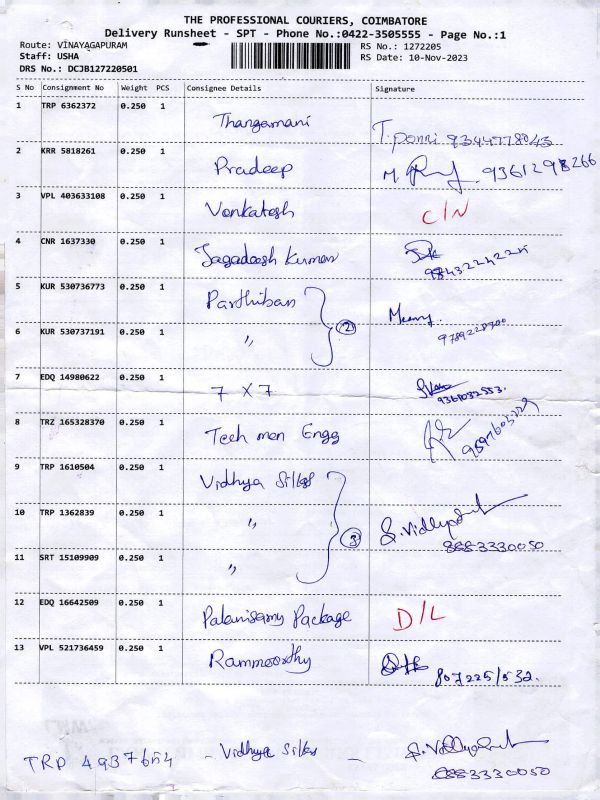 THE PROFESSIONAL COURIERS, COIMBATORE
Delivery Runsheet - SPT - Phone No.:0422-3505555 - Page No.:1
Route: VINAYAGAPURAM RS No.: 1272205
Staff: USHA RS Date: 10-Nov-2023
DRS No.: DCJB127220501
S No Consignment No Weight PCS Consignee Details Signature
1 TRP 6362372 0.250 1 Thangamani T. Ponni 9344778043
2 KRR 5818261 0.250 1 Pradeep M 9361298266
3 VPL 403633108 0.250 1 Venkatesh C/N
4 CNR 1637330 0.250 1 Jagadeesh Kumar
5 KUR 530736773 0.250 1 Parthiban
6 KUR 530737191 0.250 1 〃 (2)
7 EDQ 14980622 0.250 1 7 X 7
8 TRZ 165328370 0.250 1 Tech men Engg
9 TRP 1610504 0.250 1 Vidhya Silks
10 TRP 1362839 0.250 1 〃 (3) 8883330050
11 SRT 15109909 0.250 1 〃
12 EDQ 16642509 0.250 1 Palanisamy Package D/L
13 VPL 521736459 0.250 1 Rammoorthy
TRP 4937654 - Vidhya Silks - 8883330050